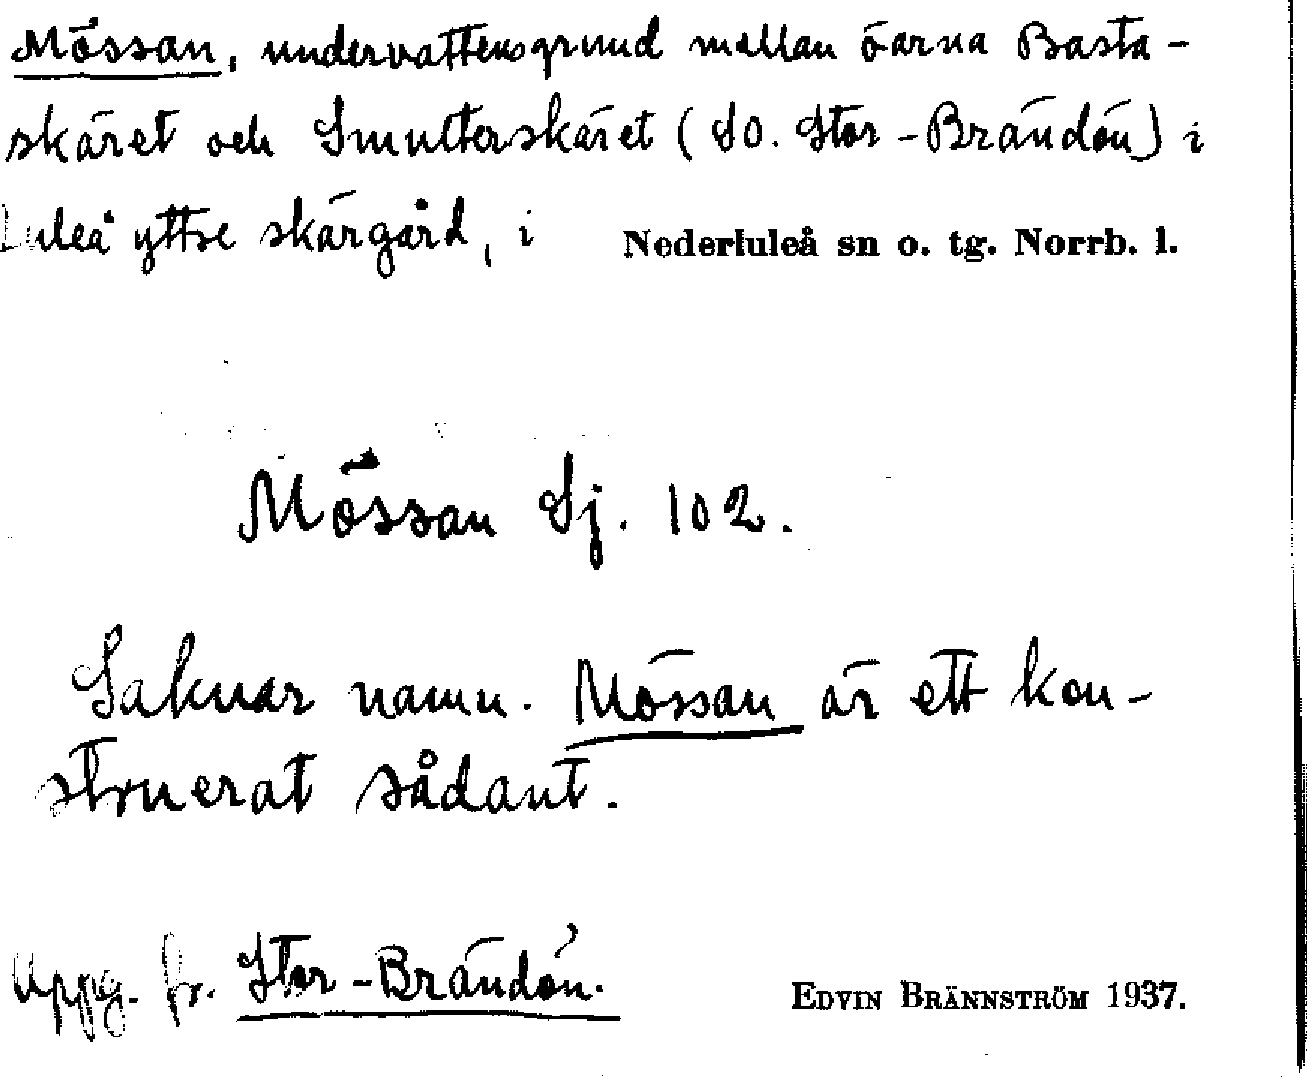 Mössan, undervattensgrund mellan öarna Basta-
skäret och Smulterskäret (SO. Stor-Brändön) i
Luleå yttre skärgård, i Nederluleå sn o. tg. Norrb. l.
Mössan Sj. 102.
Saknar namn. Mössan är ett kon-
struerat sådant.
Uppg. fr. Stor-Brändön.
EDVIN BRÄNNSTRÖM 1937.